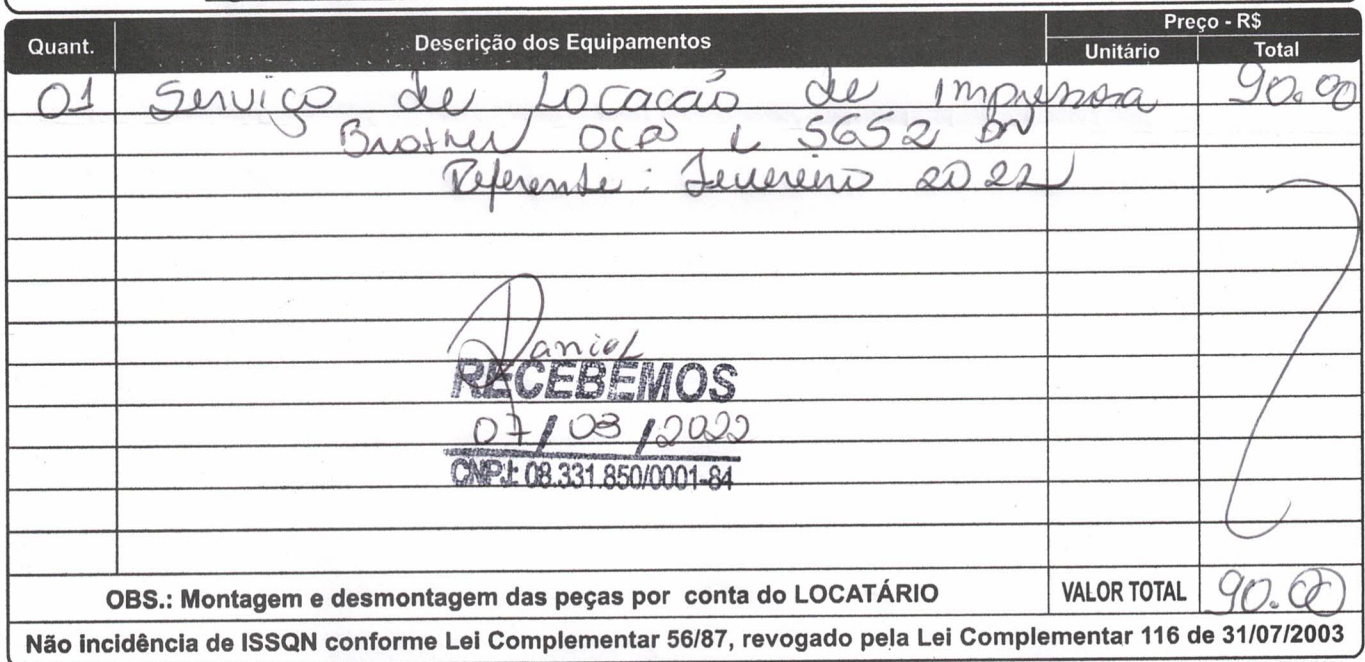 Quant. Descrição dos Equipamentos Preço - R$
Unitário Total
01 Serviço de Locação de Impressora 90.00
Brother DCP L 5652 DN
Referente: Fevereiro 2022
Daniel
RECEBEMOS
07/03/2022
CNPJ: 08.331.850/0001-84
OBS.: Montagem e desmontagem das peças por conta do LOCATÁRIO VALOR TOTAL 90.00
Não incidência de ISSQN conforme Lei Complementar 56/87, revogado pela Lei Complementar 116 de 31/07/2003